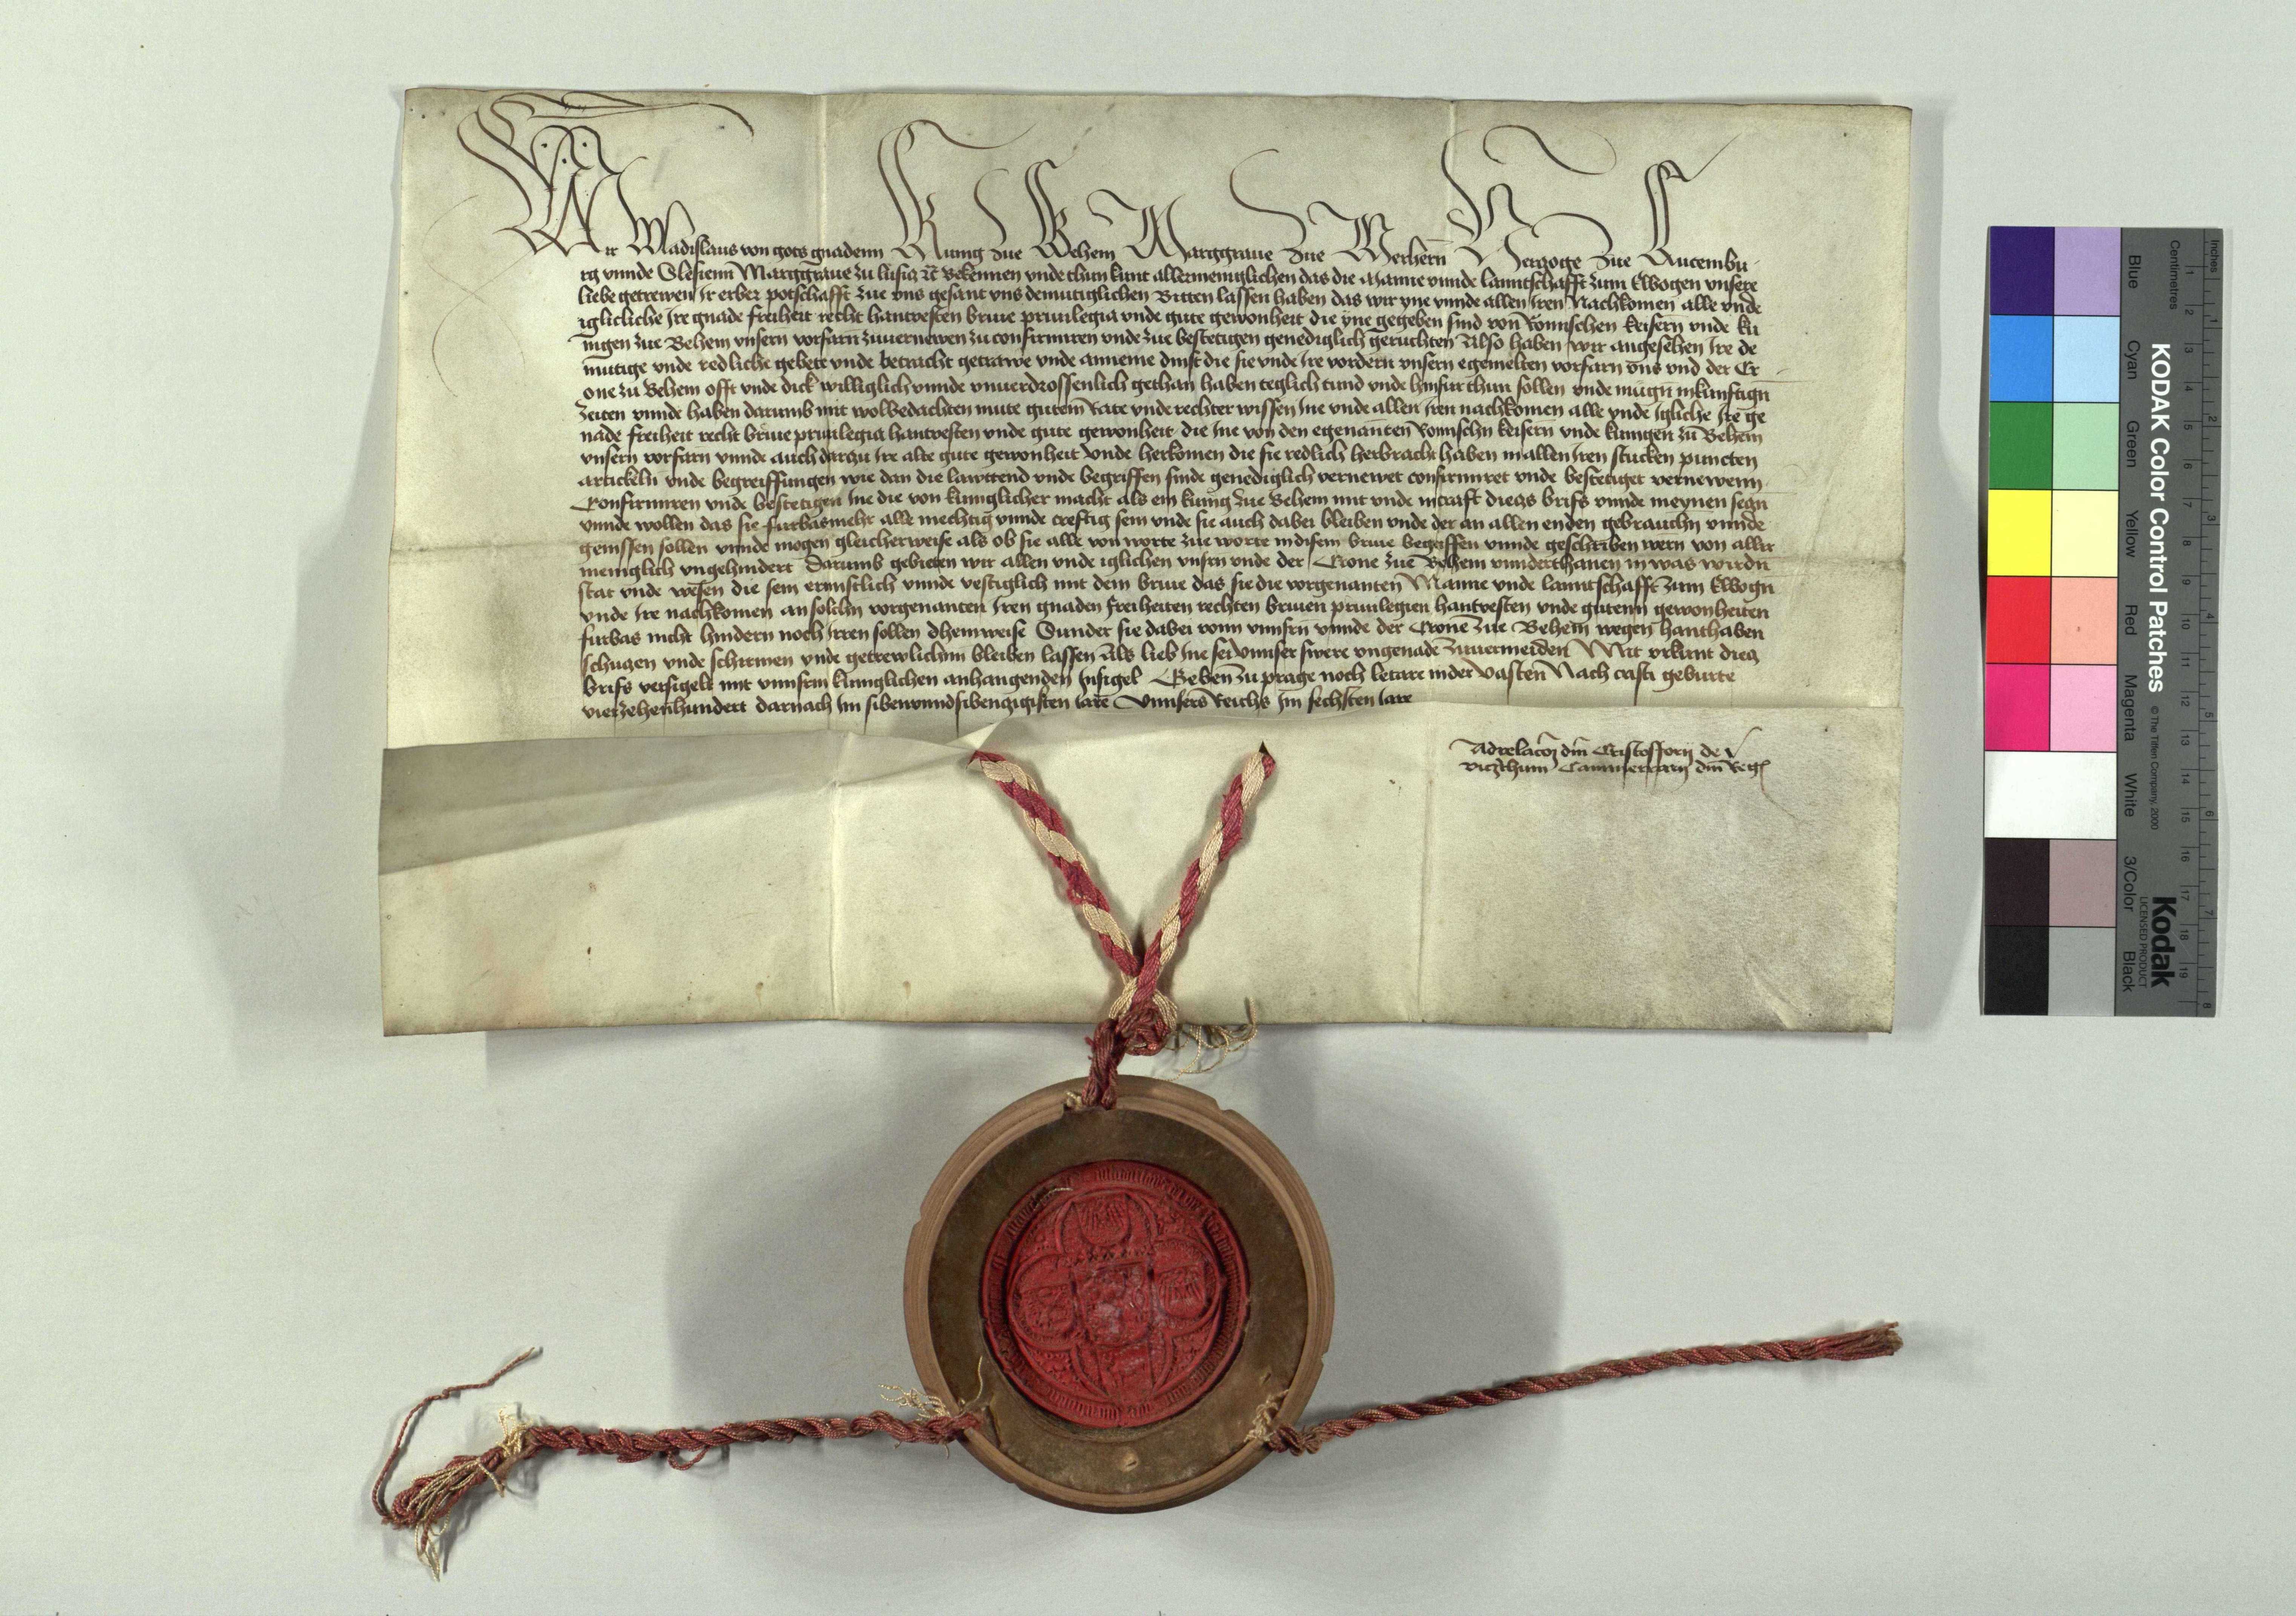 Wir Wladislaus von gots gnadenn Kunig zue Behem Marggraue zue Merhern Herzoge zue Lucembu
rg vnnde Slesienn Marggraue zu lusiz ꝛc Bekennen vnde thun kunt allermeniglichen das die Manne vnnde lanntschafft zum Elbogen vnsere
liebe getrewen Ir erber potschafft zue vns gesant vns demutiglichen Bitten lassen haben das wir yne vnnde allen Iren Nachkomen alle vnde
iglicliche Ire gnade freiheit recht hantvesten briue priuilegia vnde gute gewonheit die yne gegeben sind von Romischen keisern vnde ku
nigen zue Behem vnsern vorfarn zuuernewen zu confirmiren vnde zue bestetigen genediglich geruchten Also haben wir angesehen Ire de
mutige vnde redliche gebete vnde betracht getrawe vnde anneme dinst die sie vnde Ire vordern vnsern egemelten vorfarn vns vnd der Cr
one zu Behem offt vnde dick williglich vnnde vnuerdrossenlich gethan haben teglich tund vnde hinfur thun sollen vnde mugn inkunftign
zeiten vnnde haben darumb mit wolbedachten mute gutem Rate vnde rechter wissen Ine vnde allen Iren nachkomen alle vnde Igliche Ire ge
nade freiheit recht briue priuilegia hantvesten vnde gute gewonheit die Ine von den egenanten Romischn keisern vnde kunigen zu Behem
vnsern vorfarn vnnde auch darzu Ire alte gute gewonheit vnde herkomen die sie redlich herbracht haben in allen Iren stucken puncten
artickeln vnde begreiffungen wie dan die lawttend vnde begriffen sinde genediglich vernewet confirmiret vnde bestetiget vernewenn
Confirmiren vnde bestetigen Ine die von kuniglicher macht als ein kunig zue Behem mit vnde incraft diczs brifs vnnde meynen sezn
vnnde wollen das sie furbasmehr alle mechtig vnnde creftig sein vnde sie auch dabei bleiben vnde der an allen enden gebrauchn vnnde
genissen sollen vnnde mogen gleicherweise als ob sie alle von worte zue worte indisem briue begriffen vnnde geschriben wern von aller
meniglich vngehindert Darumb gebieten wir allen vnde iglichen vnsrn vnde der Crone zue Behem vnnderthanen in was wirdn
stat vnde wesen die sein ernnstlich vnnde vestiglich mit dem briue das sie die vorgenanten Manne vnde lanntschafft zum Elbogn
vnde Ire nachkomen an solchn vorgenanten Iren gnaden freiheiten rechten briuen priuilegien hantvesten vnde gutenn gewonheiten
furbas nicht hindern noch Irren sollen dheinweise Sunder sie dabei vonn vnnsrn vnnde der Crone zue Behem wegen hanthaben
schuzen vnde schirmen vnde getrewlichnn bleiben lassen Als lieb Ine sei vnnser swere vngenade zuuermeiden Mit vrkunt diez
brifs versigelt mit vnnsrm kuniglichen anhangenden Insigel Geben zu prage noch letare inder vasten Nach cristi geburte
vierzehenhundert darnach Im sibenvnndsibenzigisten iare Vnnsers Reichs Im sechsten iare
Adrelacōē dm̄ Cristofforj de
viczthum Cammerarij dm̄ Reg
KODAK Color Control Patches
© The Tiffen Company, 2000
Kodak
LICENSED PRODUCT
Blue Cyan Green Yellow Red Magenta White 3/Color Black
Inches 1 2 3 4 5 6 7 8
Centimetres 1 2 3 4 5 6 7 8 9 10 11 12 13 14 15 16 17 18 19